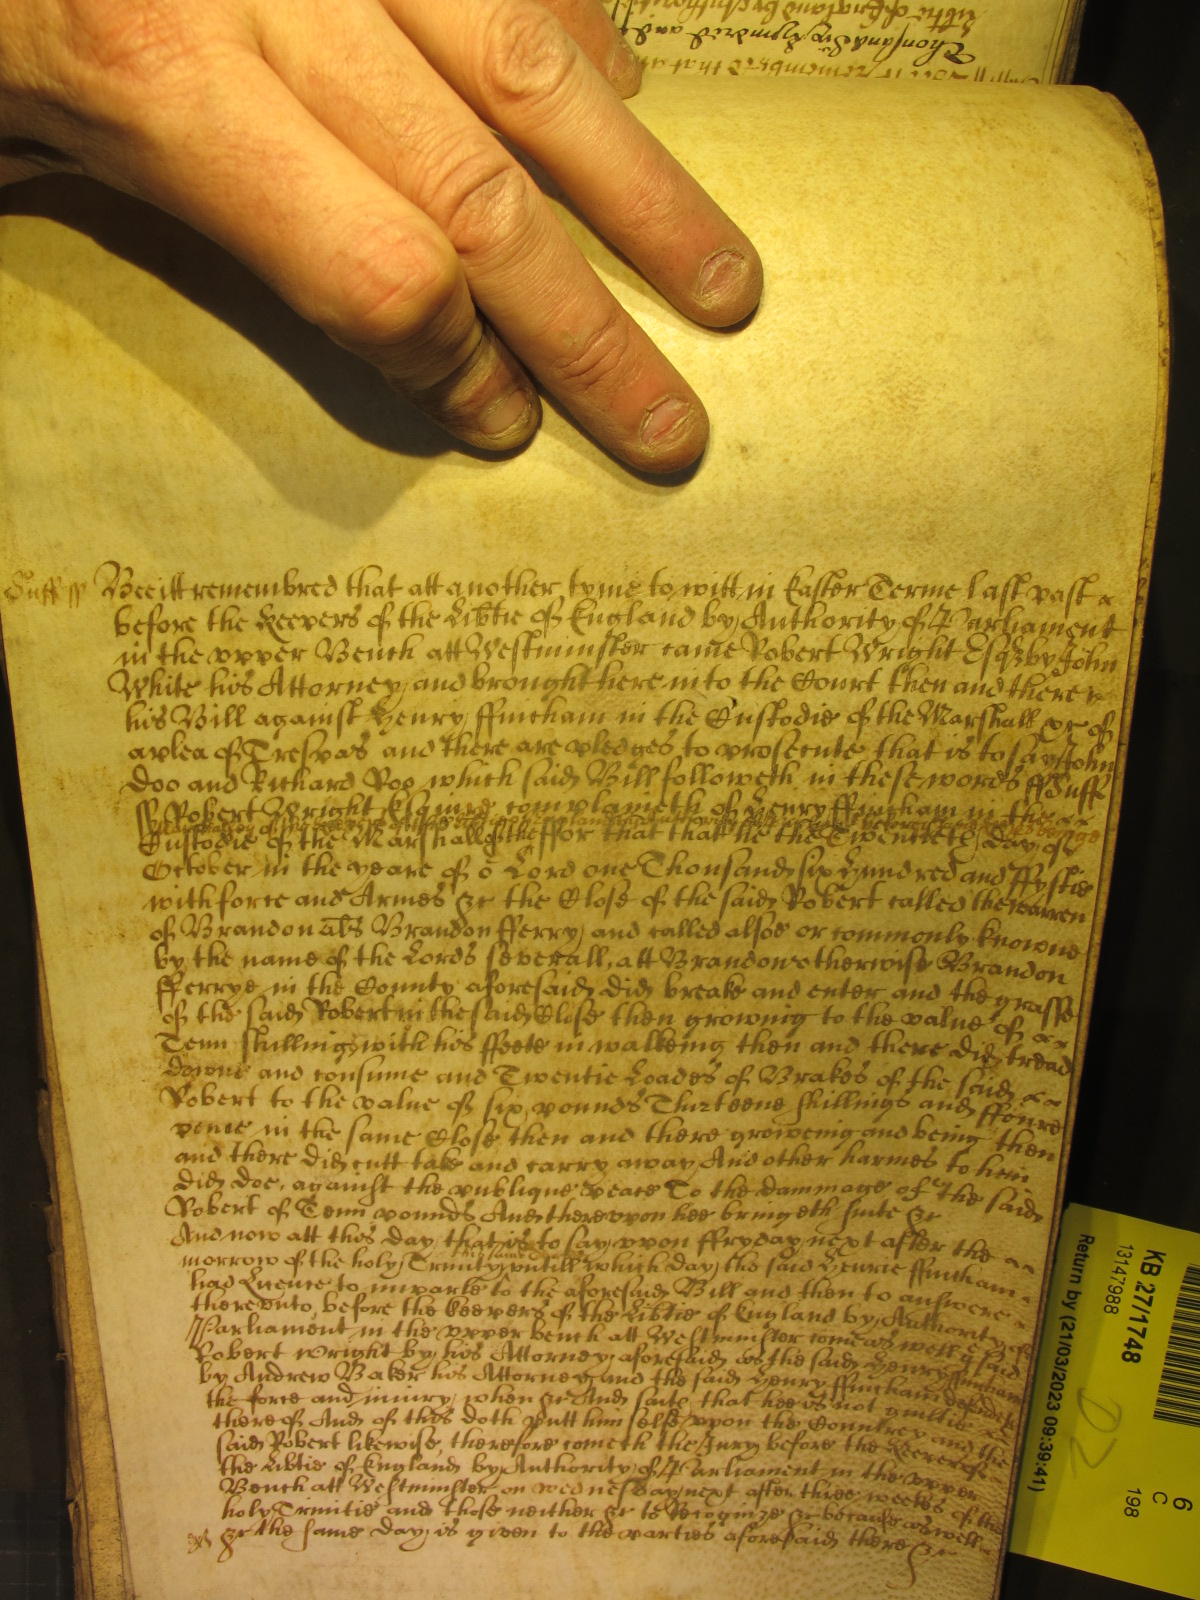 Suff ss Bee itt remembred that att another tyme to witt in Easter Terme last past
before the Keepers of the Libtie of England by Authority of Parliament
in the upper Bench att Westminster came Robert Wright Esqr by John
White his Attorney and brought here into the Court then and there
his Bill against Henry ffincham in the Custodie of the Marshall &c of
a plea of Trespas and there are pledges to prosecute that is to say John
Doo and Richard Roo which said Bill followeth in these words ss Suff
ss Robert Wright Esquire complaineth of Henry ffincham in the
Custodie of the Marshall for that that he the Twentieth day of
October in the yeare of or Lord one Thousand six Hundred and ffyftie
with force and Armes &c the Close of the said Robert called the warren
of Brandon als Brandon fferry and called alsoe or commonly knowne
by the name of the Lords severall att Brandon otherwise Brandon
fferrye in the County aforesaid did breake and enter and the grasse
of the said Robert in the said Close then growing to the value of
Tenn shillings with his ffeete in walkeing then and there did tread
downe and consume and Twentie Loades of Brakes of the said
Robert to the value of six pounds Thirteene shillings and ffoure
pence in the same Close then and there groweing and being then
and there did cutt take and carry away And other harmes to him
did doe, against the publique peace To the dammage of the said
Robert of Tenn pounds And thereupon hee bringeth suite &c
And now att this day that is to say upon ffryday next after the
morrow of the holy Trinity untill which day the said Henrie ffincham
had Licence to imparle to the aforesaid Bill and then to answere
thereunto, before the keepers of the Libtie of England by Authority of
Parliament in the upper bench att Westminster come as well the said
Robert Wright by his Attorney aforesaid as the said Henry ffincham
by Andrew Baker his Attorney and the said Henry ffincham defendeth
the force and iniury when &c And saith that hee is not guiltie
thereof And of this doth putt him selfe upon the Countrey and the
said Robert likewise, therefore cometh the Jury before the Keepers of
the Libtie of England by Authority of Parliament in the upper
Bench att Westminster on wednesday next after three weekes of the
holy Trinitie and those neither &c to Recognize &c because as well
&c the same day is given to the parties aforesaid there &c
KB 27/1748
13147988
Return by (21/03/2023 09:39:41)
6
C
198